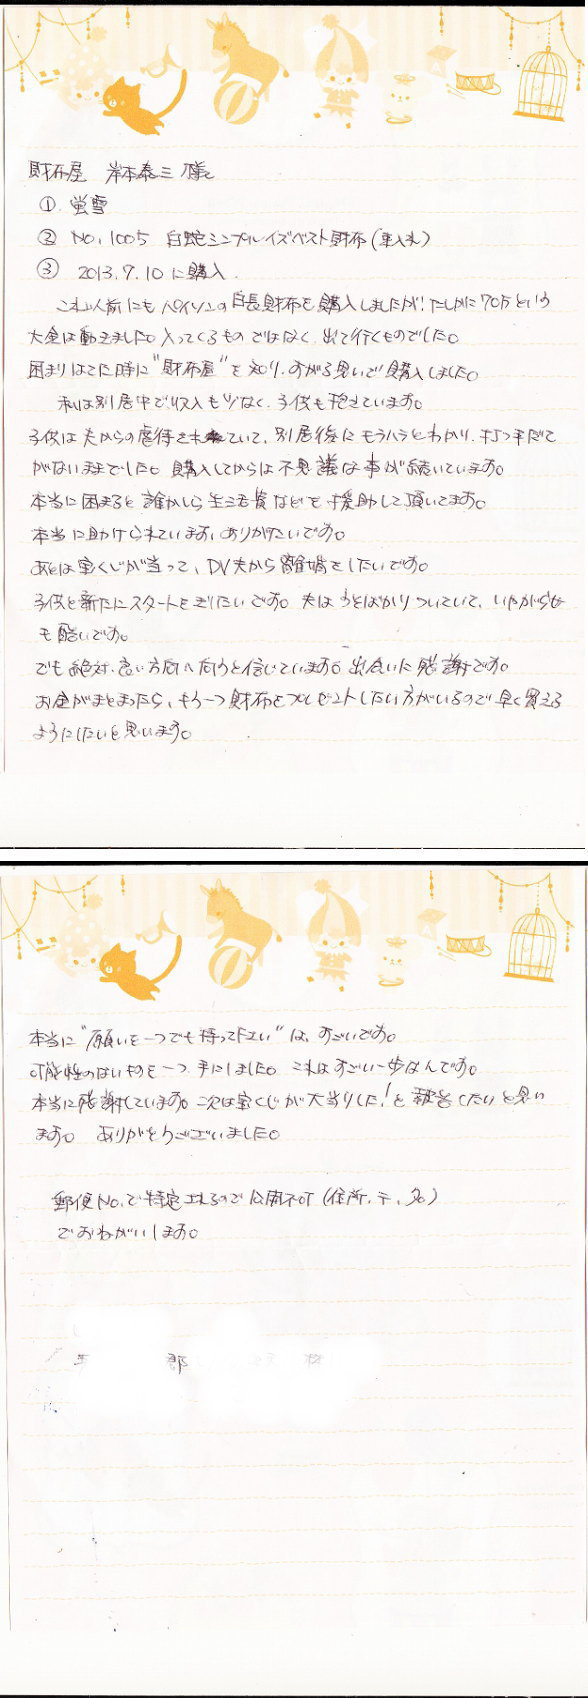 財布屋 岸本泰三 様
① 螢雪
② NO,1005 白蛇シンプルイズベスト財布(束入れ)
③ 2013.9.10に購入
これ以前にもパイソンの白長財布を購入しましたが!たしかに70万という
大金は動きました。入ってくるものではなく、出て行くものでした。
困りはてた時に"財布屋"を知り、すがる思いで購入しました。
私は別居中で収入も少なく、子供も抱えています。
子供は夫からの虐待されていて、別居後にモラハラとわかり、打つ手だて
がないままでした。購入してからは不思議な事が続いています。
本当に困まると誰かしら生活費などを援助して頂いてます。
本当に助けられています、ありがたいです。
あとは宝くじが当って、DV夫から離婚をしたいです。
子供と新たにスタートをきりたいです。夫はうそばかりついていて、いやがらせ
も酷いです。
でも絶対、良い方向へ向うと信じています。出会いに感謝です。
お金がまとまったら、もう一つ財布をプレゼントしたい方がいるので早く買える
ようにしたいと思います。
本当に"願いを一つでも持って下さい"は、すごいです。
可能性のないものを一つ手にしました。これはすごい一歩なんです。
本当に感謝しています。次は宝くじが大当りした!と報告したいと思い
ます。 ありがとうございました。
郵便No.で特定されるので公開不可(住所、〒、名)
でおねがいします。
郡